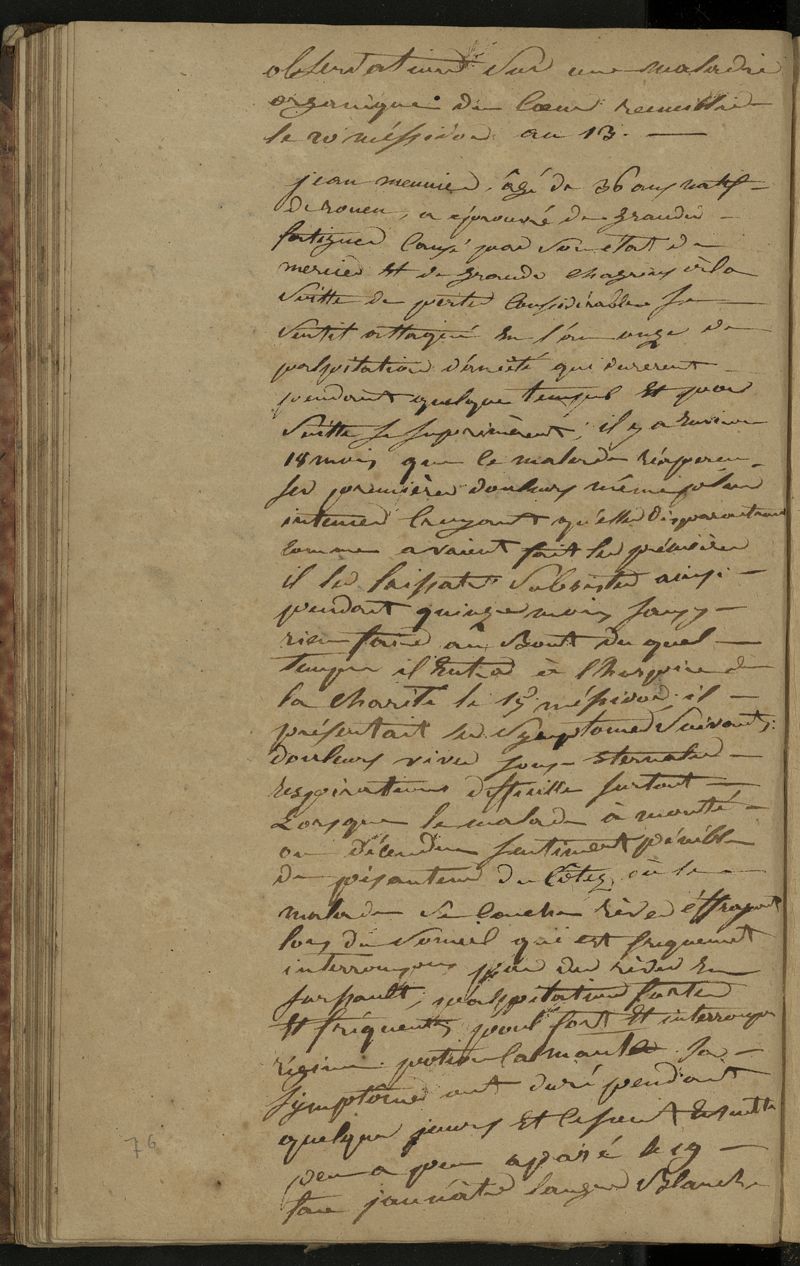 observations sur une maladie
organique du Coeur recueillie
le 20 méssidor an 13. —
jean meunier, âgé de 36 ans natif
de rouen, a éprouvé de grandes
fatigues Causé par son état de
mercier Et de grands chagrins à la
suitte de pertes Considérables se
sentit attaqué En l'an onze de
palpitations d'anciété qui durerent
pendant quelque temps Et par
suitte se suprimèrent; il y a Environ
18 mois que le malade réaperçu
ses premières douleurs même plus
intences Croyant qu'elles disparaitraient
comme avaient fait les premières
il les laissat subsister ainsi
pendant quinze mois sans
rien faire au Bout du quel
temps il Entra à l'hospice de
la charité le 15 méssidor il
présentait les symptomes suivants:
douleurs vives sous-sternales
respirations difficille surtout
Lorsque le malade à monté
ou décendu sentiment pénible
de pésanteur du Côtez où le
malade se Couche rèves éffrayant
lors du someil qui est frequement
interrompus par des rèves En
sursault, palpitations fortes
Et fréquentes, pouls fort Et interrompu
régime potion Calmante les
symptômes ont duré pendant
quelque jours Et Ensuitte
peu a peu apaisé le 19
face jaunâtre langue Blanche
76